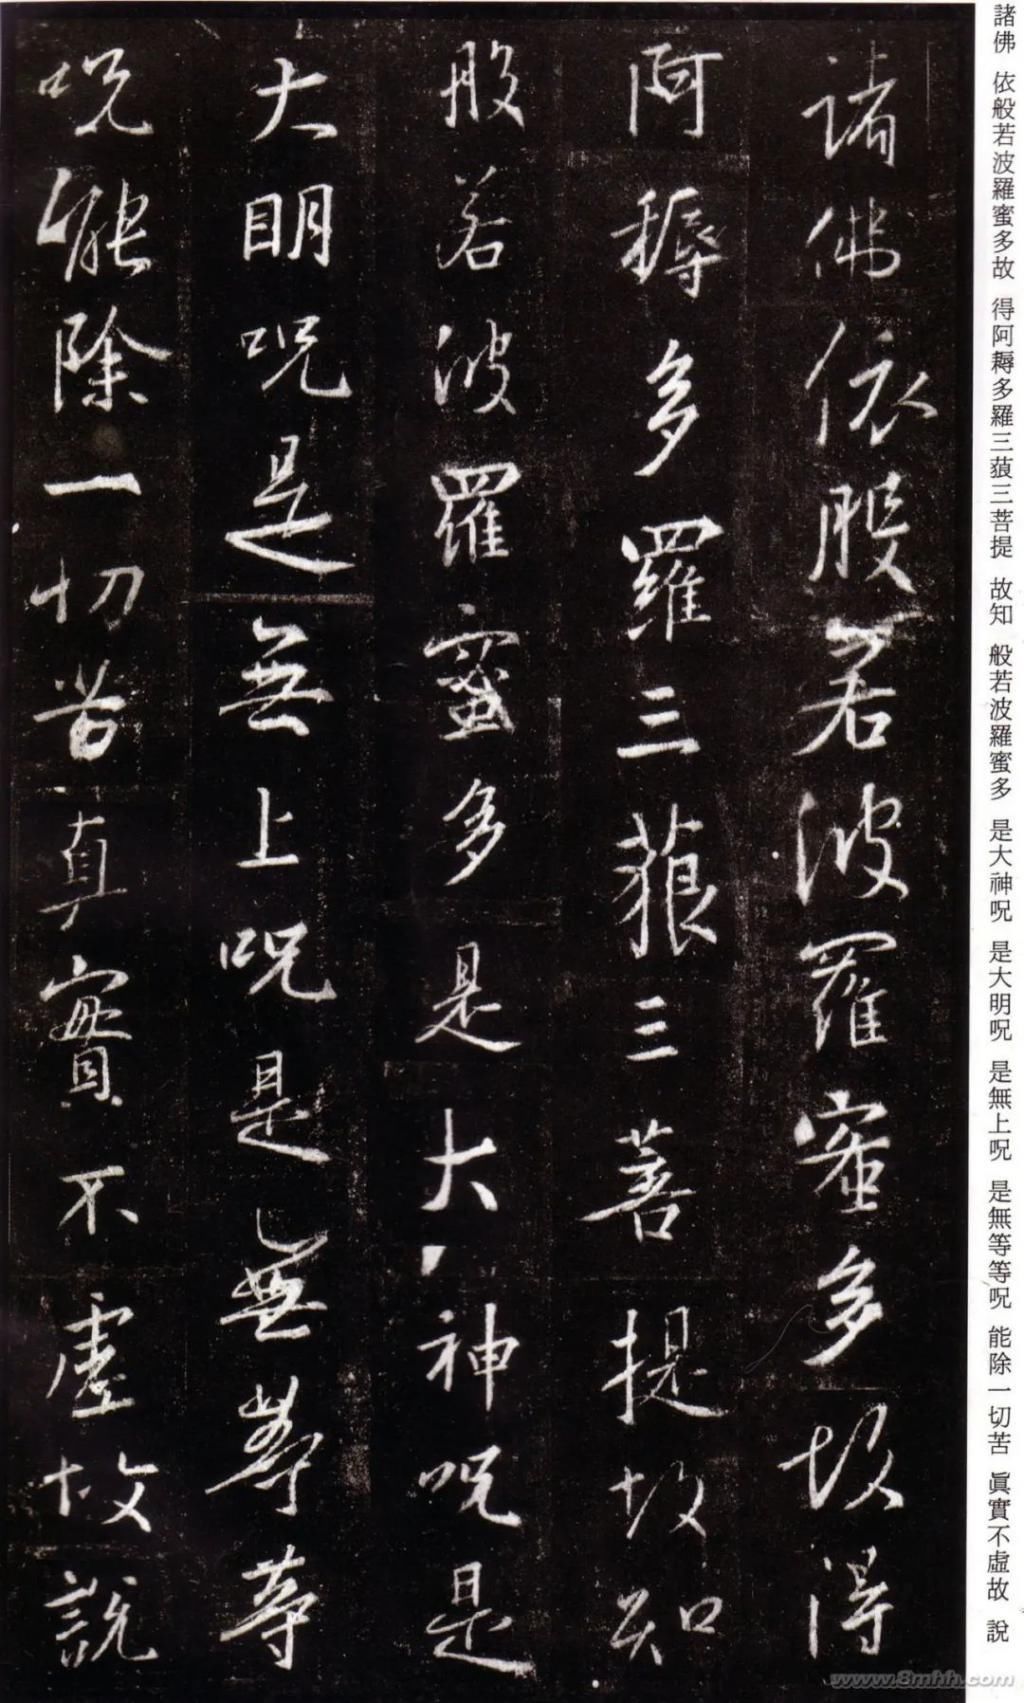 諸佛依般若波羅蜜多故得
阿耨多羅三藐三菩提故知
般若波羅蜜多是大神呪是
大明呪是無上呪是無等等
呪能除一切苦真實不虛故說
諸佛 依般若波羅蜜多故 得阿耨多羅三藐三菩提 故知 般若波羅蜜多 是大神呪 是大明呪 是無上呪 是無等等呪 能除一切苦 眞實不虛故 說
www.8mhh.com